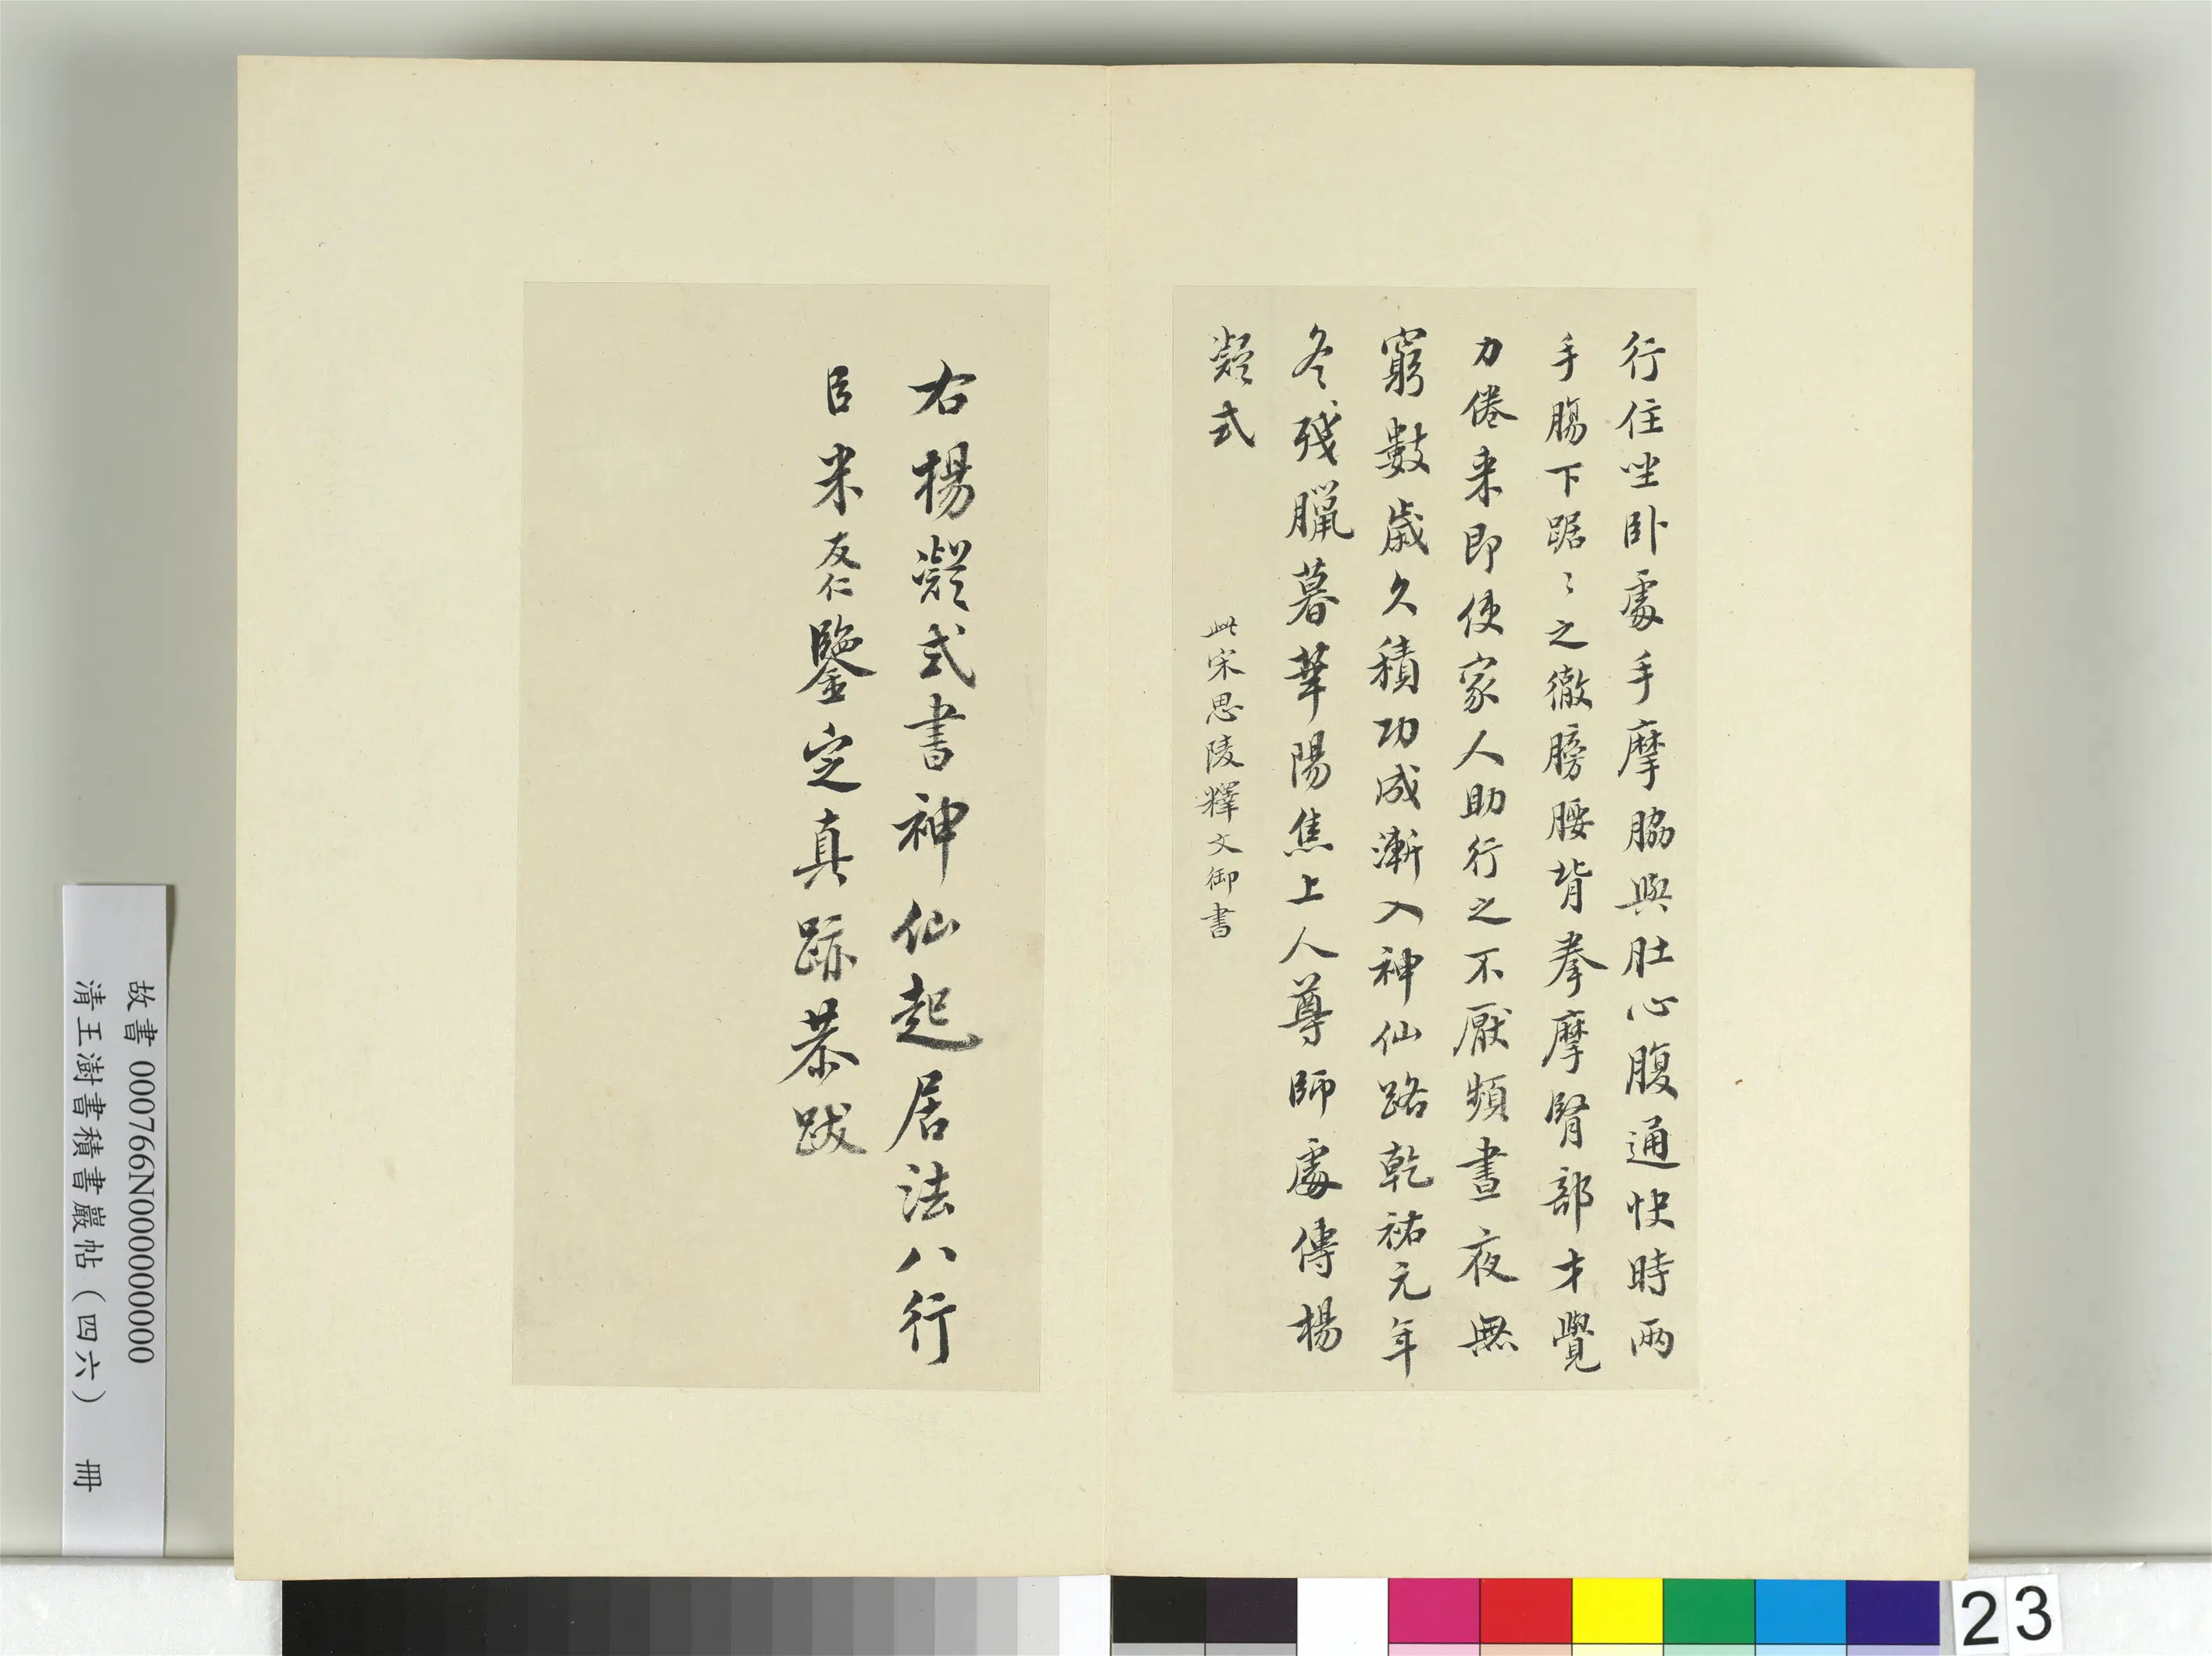 行住坐卧處手摩脇與肚心腹通快時兩
手腸下踞〻之徹膀腰背拳摩腎部才覺
力倦来即使家人助行之不厭頻晝夜無
窮數歲久積功成漸入神仙路乾祐元年
冬殘臘暮華陽焦上人尊師處傳楊
凝式
此宋思陵釋文御書
右楊凝式書神仙起居法八行
臣米友仁鑒定真跡恭跋
故書 000766N000000000
清王澍書積書巖帖（四六） 冊
23